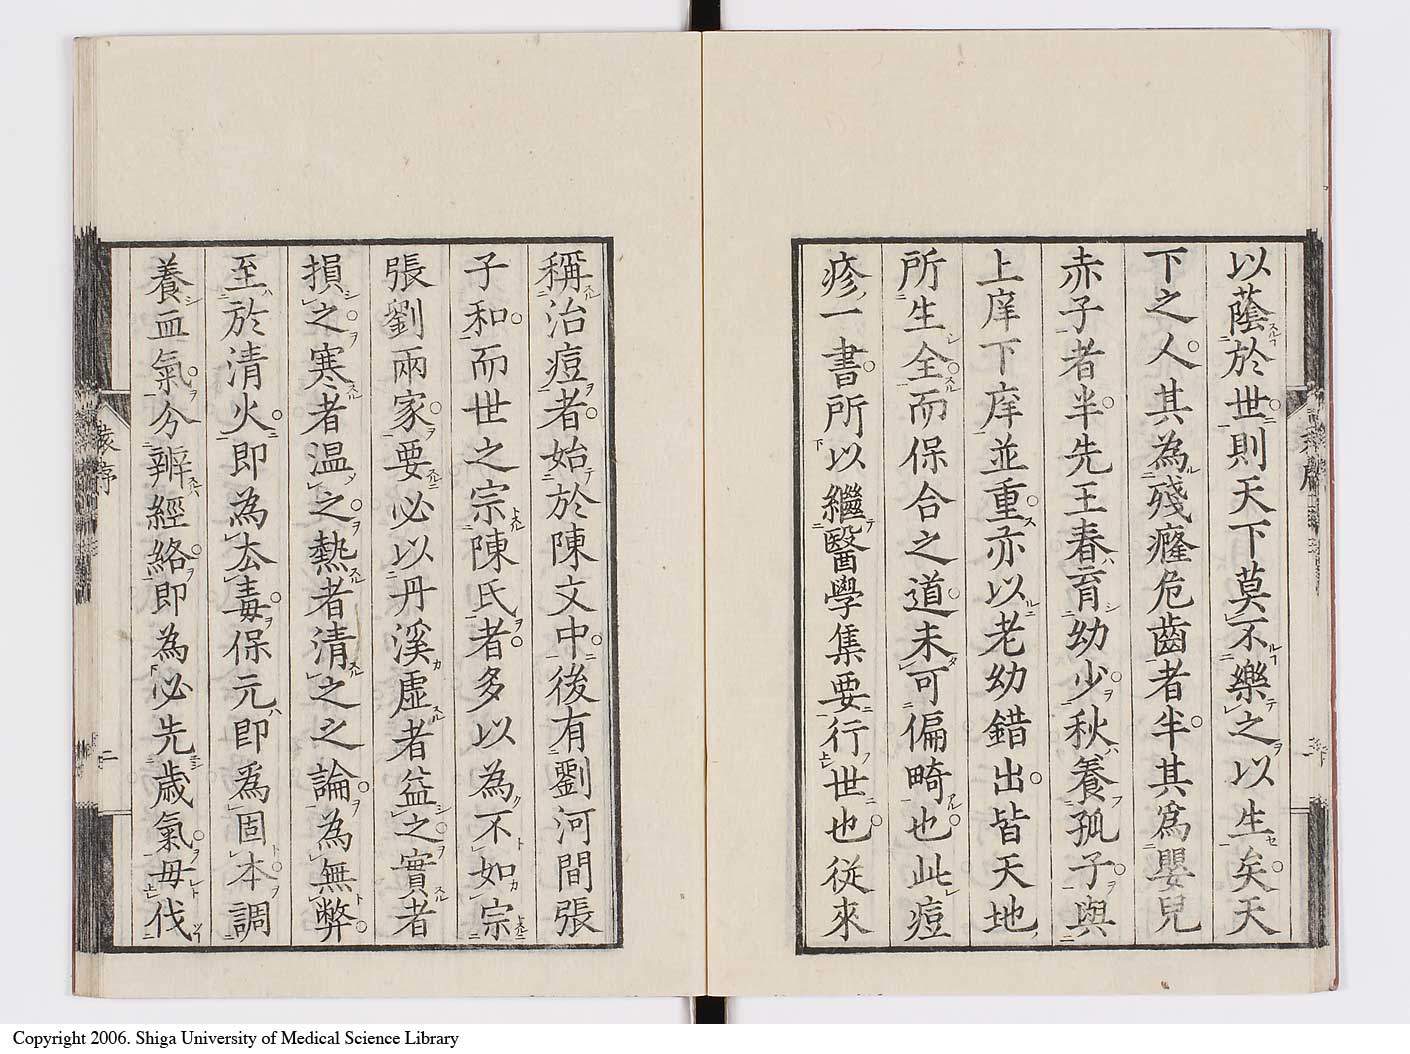 以蔭於世則天下莫不樂之以生矣天
下之人其為殘癃危齒者半其爲嬰兒
赤子者半先王春育幼少秋養孤子與
上庠下庠並重亦以老幼錯出皆天地
所生全而保合之道未可偏畸也此痘
疹一書所以繼醫學集要行世也従來
稱治痘者始於陳文中後有劉河間張
子和而世之宗陳氏者多以為不如宗
張劉兩家要必以丹溪虛者益之實者
損之寒者温之熱者清之之論為無弊
至於清火即為厺毒保元即爲固本調
養血氣分辨經絡即為必先歲氣毋伐
序
二
Copyright 2006. Shiga University of Medical Science Library